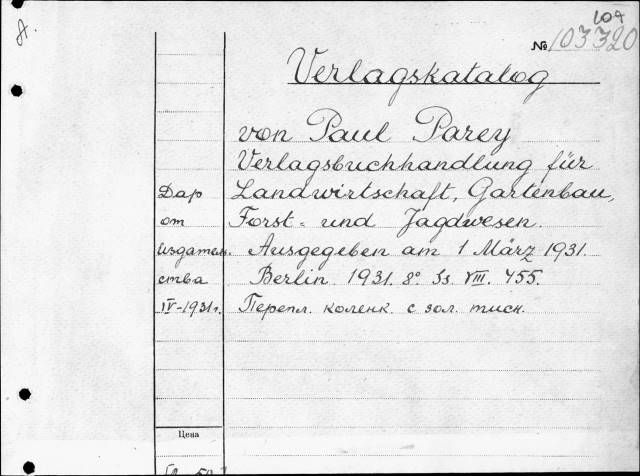 104
A.
№ 103320
Verlagskatalog
von Paul Parey
Verlagsbuchhandlung für
Дар Landwirtschaft, Gartenbau,
от Forst- und Jagdwesen.
издатель- Ausgegeben am 1 März 1931.
ства Berlin. 1931. 8° Ss. VIII. 455.
IV-1931 г. Перепл. коленк. с зол. тисн.
Цена